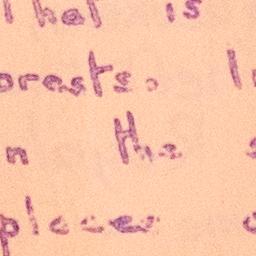 that is
orests. I
n the
places